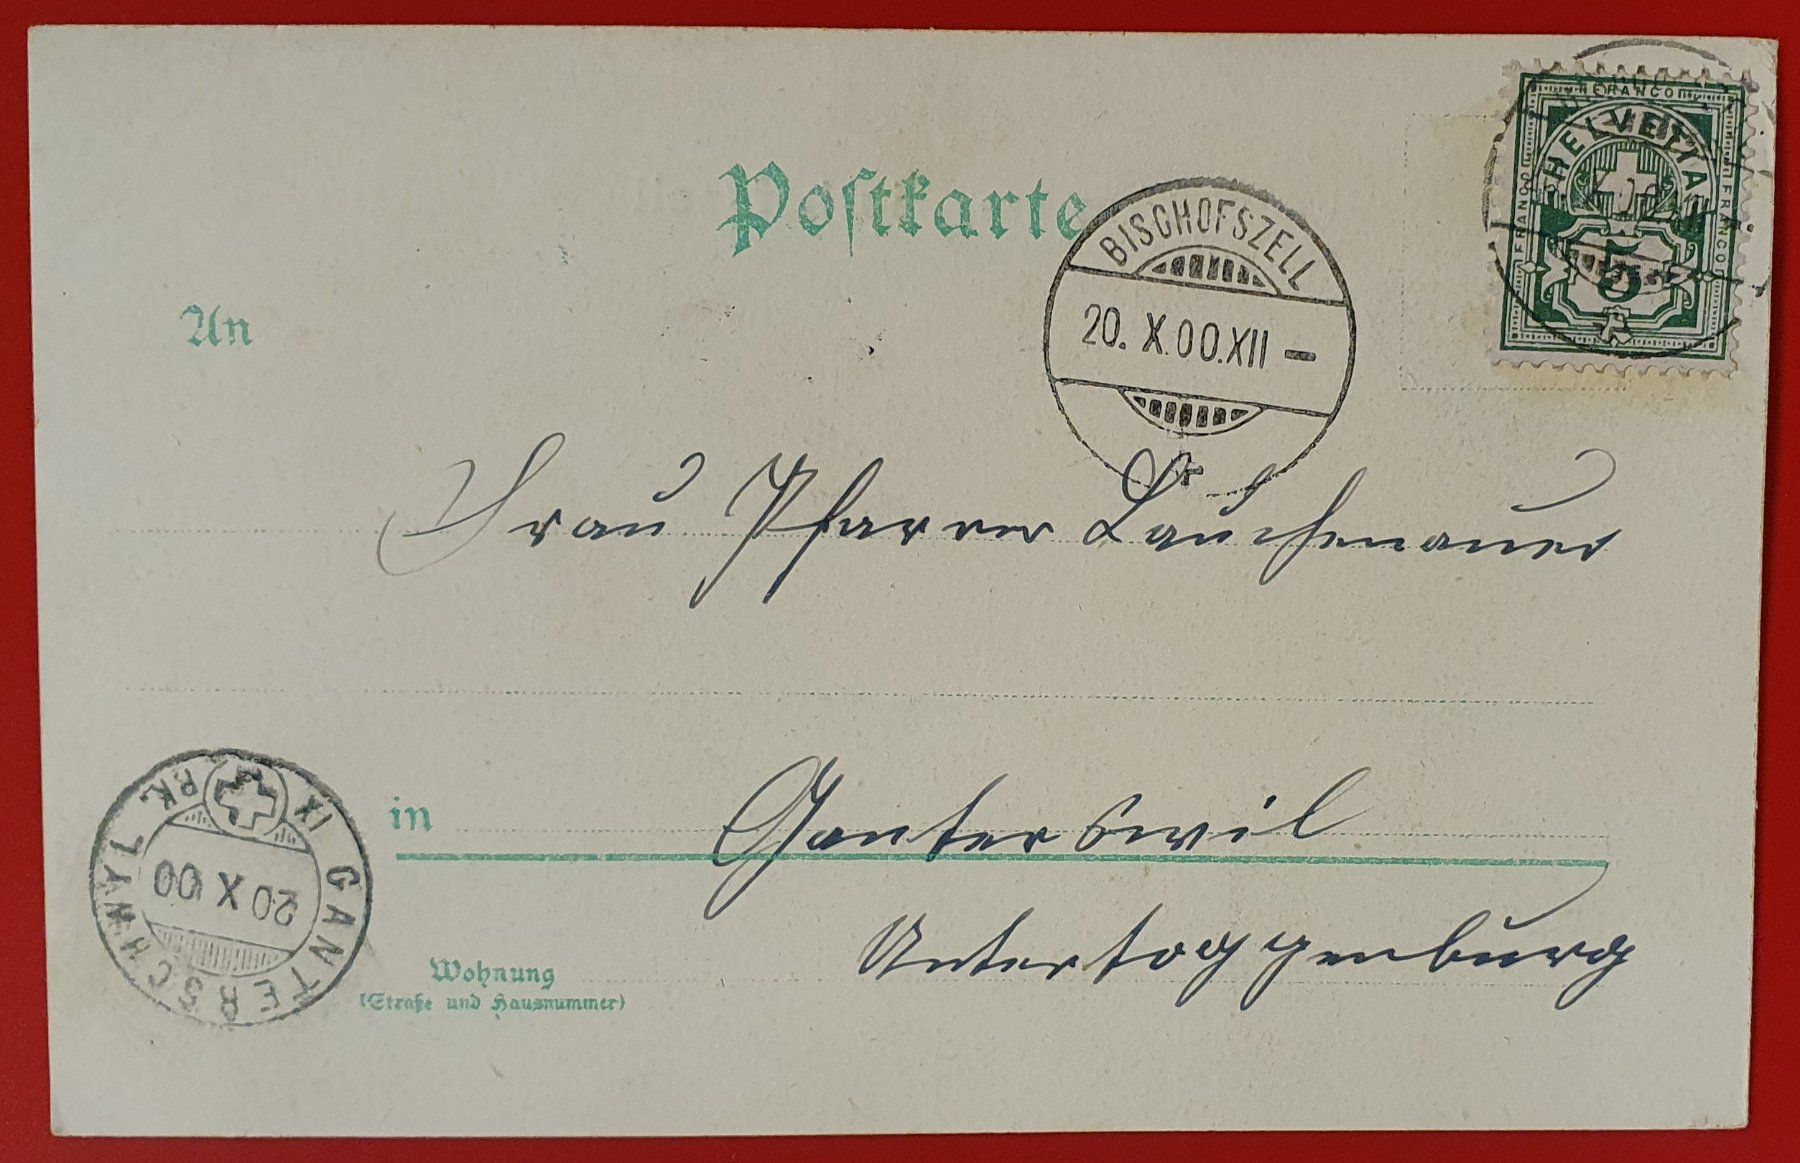 Postkarte
FRANCO
FRANCO
FRANCO
HELVETIA
5
BISCHOFSZELL
20. X.00.XII –
An
Frau Pfarrer Lauchenauer
in Ganterswil
Untertoggenburg
Wohnung
(Straße und Hausnummer)
GANTERSCHWYL
20 X 00
IX
BK.